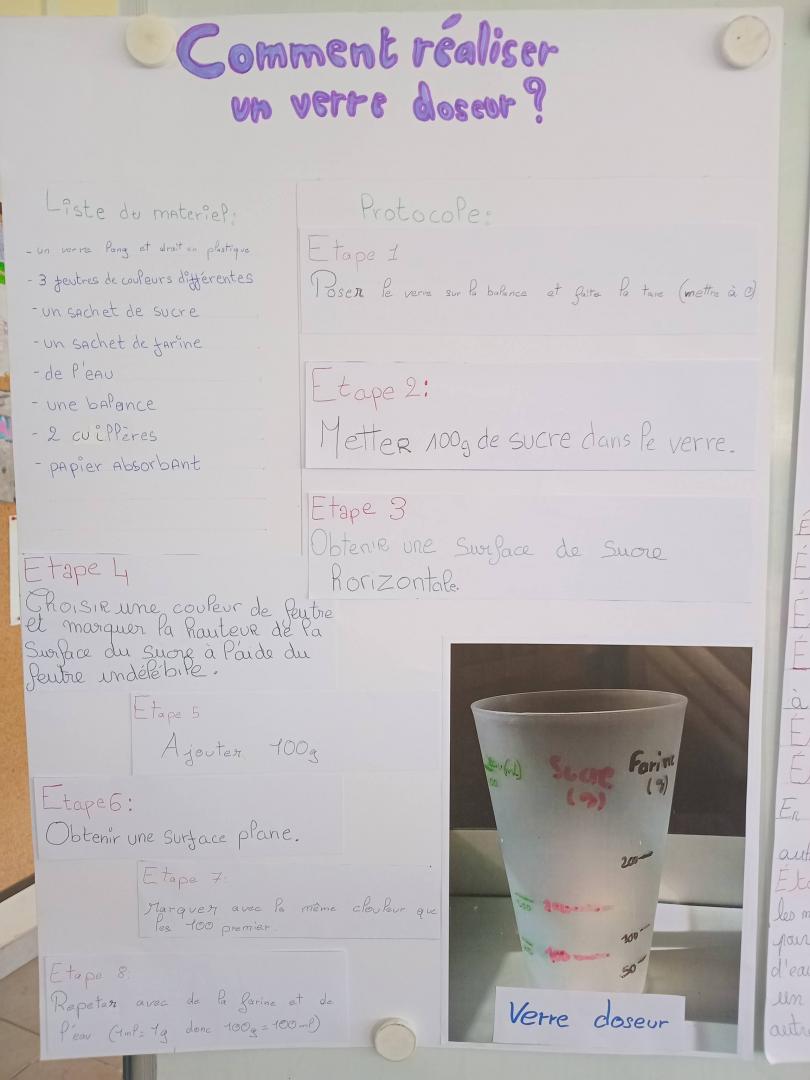 Comment réaliser
un verre doseur ?
Liste du materiel:
- un verre long et droit en plastique
- 3 feutres de couleurs différentes
- un sachet de sucre
- un sachet de farine
- de l'eau
- une balance
- 2 cuillères
- papier absorbant
Protocole:
Etape 1
Poser le verre sur la balance et faite la tare (mettre à 0)
Etape 2:
Metter 100g de sucre dans le verre.
Etape 3
Obtenir une surface de sucre
horizontale.
Etape 4
Choisir une couleur de feutre
et marquer la hauteur de la
surface du sucre à l'aide du
feutre indélébile.
Etape 5
Ajouter 100g
Etape 6:
Obtenir une surface plane.
Etape 7:
Marquer avec la même clouleur que
les 100 premier.
Etape 8:
Repeter avec de la farine et de
l'eau (1ml = 1g donc 100g = 100ml)
(mL)
Sucre
(g)
Farine
(g)
200
100
50
Verre doseur
É
É
É
É
à
É
É
En
les m
pour
d'ea
un
autr